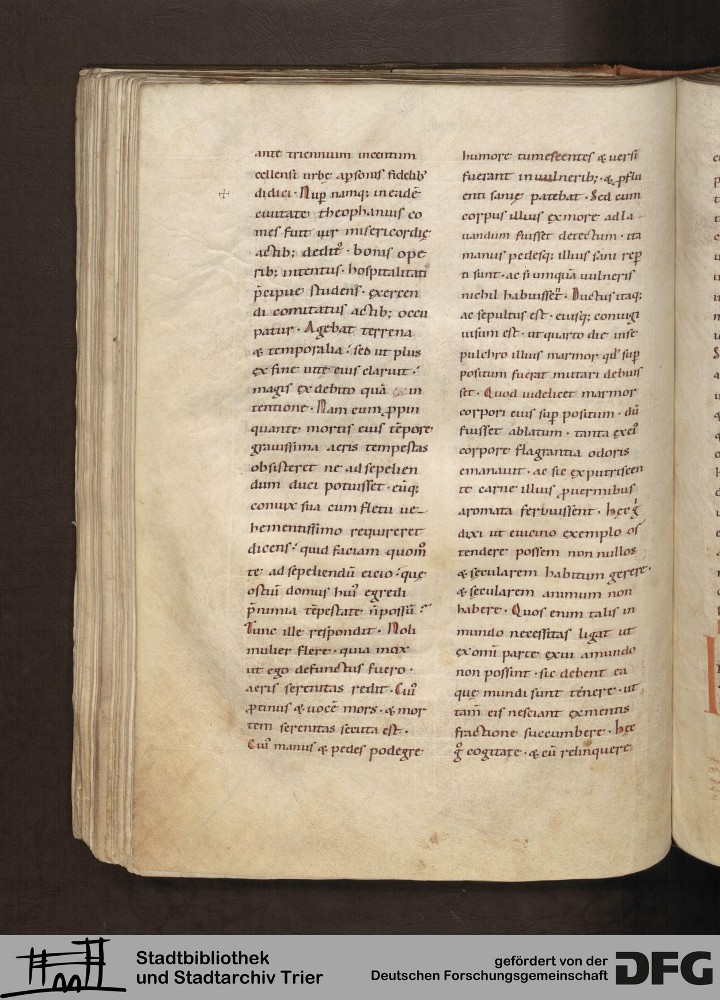 ante triennium incentum
cellensi urbe apsonis fidelib;
didici. Nup namq; in eadē
ciuitate theophanius co
mes fuit uir misericordię
actib; deditᵒ. bonis ope
rib; intentus. hospitalitati
p̄cipue studens. exercen
di comitatus actib; occu
patur. Agebat terrena
& temporalia. sed ut plus
ex fine uite eius claruit.
magis ex debito quā in
tentione. Nam eum ppin
quante mortis eius tēpore
grauissima aeris tempestas
obsisteret ne ad sepelien
dum duci potuisset. eūq;
coniux sua cum fletu ue
hementissimo requireret
dicens. quid faciam quom̊
te ad sepeliendū eicio. que
ostiū domus huiᵒ egredi
p̄ nimia tēpestate n̄ possū.
Tunc ille respondit. Noli
mulier flere. quia mox
ut ego defunctus fuero.
aeris serenitas redit. Cuiᵒ
ptinus & uocē mors. & mor
tem serenitas secuta est.
Cuiᵒ manus & pedes podagre
humore tumescentes & uersi
fuerant in uulnerib; & pflu
enti sanie patebat. Sed cum
corpus illius ex more ad la
uandum fuisset detectum. ita
manus pedesq; illius sani rep
ti sunt. ac si umquā uulneris
nichil habuisset. Ductus itaq;
ac sepultus est. eiusq; coniugi
uisum est. ut quarto die in se
pulchro illius marmor qd sup
positum fuerat mutari debuis
set. Quod uidelicet marmor
corpori eius sup positum. dū
fuisset ablatum. tanta ex eiᵒ
corpore flagrantia odoris
emanauit. ac sie ex putriscen
te carne illius p uermibus
aromata feruuissent. Hęc g̊
dixi ut e uicino exemplo os
tendere possem non nullos
& secularem habitum gerere.
& secularem animum non
habere. Quos enim talis in
mundo necessitas ligat ut
ex omi parte exui a mundo
non possint. sic debent ea
que mundi sunt tēnere. ut
tam̄ eis nesciant ex mentis
fractione succumbere. Hęc
g̊ cogitate. & cū relinquere
Stadtbibliothek
und Stadtarchiv Trier
gefördert von der
Deutschen Forschungsgemeinschaft
DFG